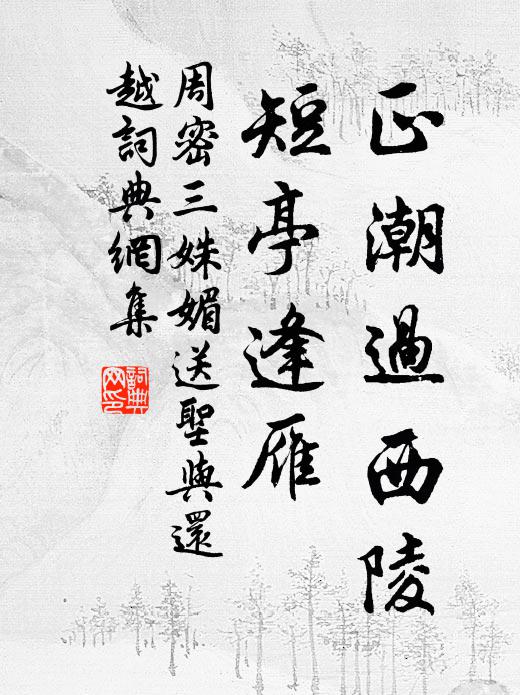 正潮過西陵
短亭逢雁
周密三姝媚送聖與還
越詞典網集
詞典網印